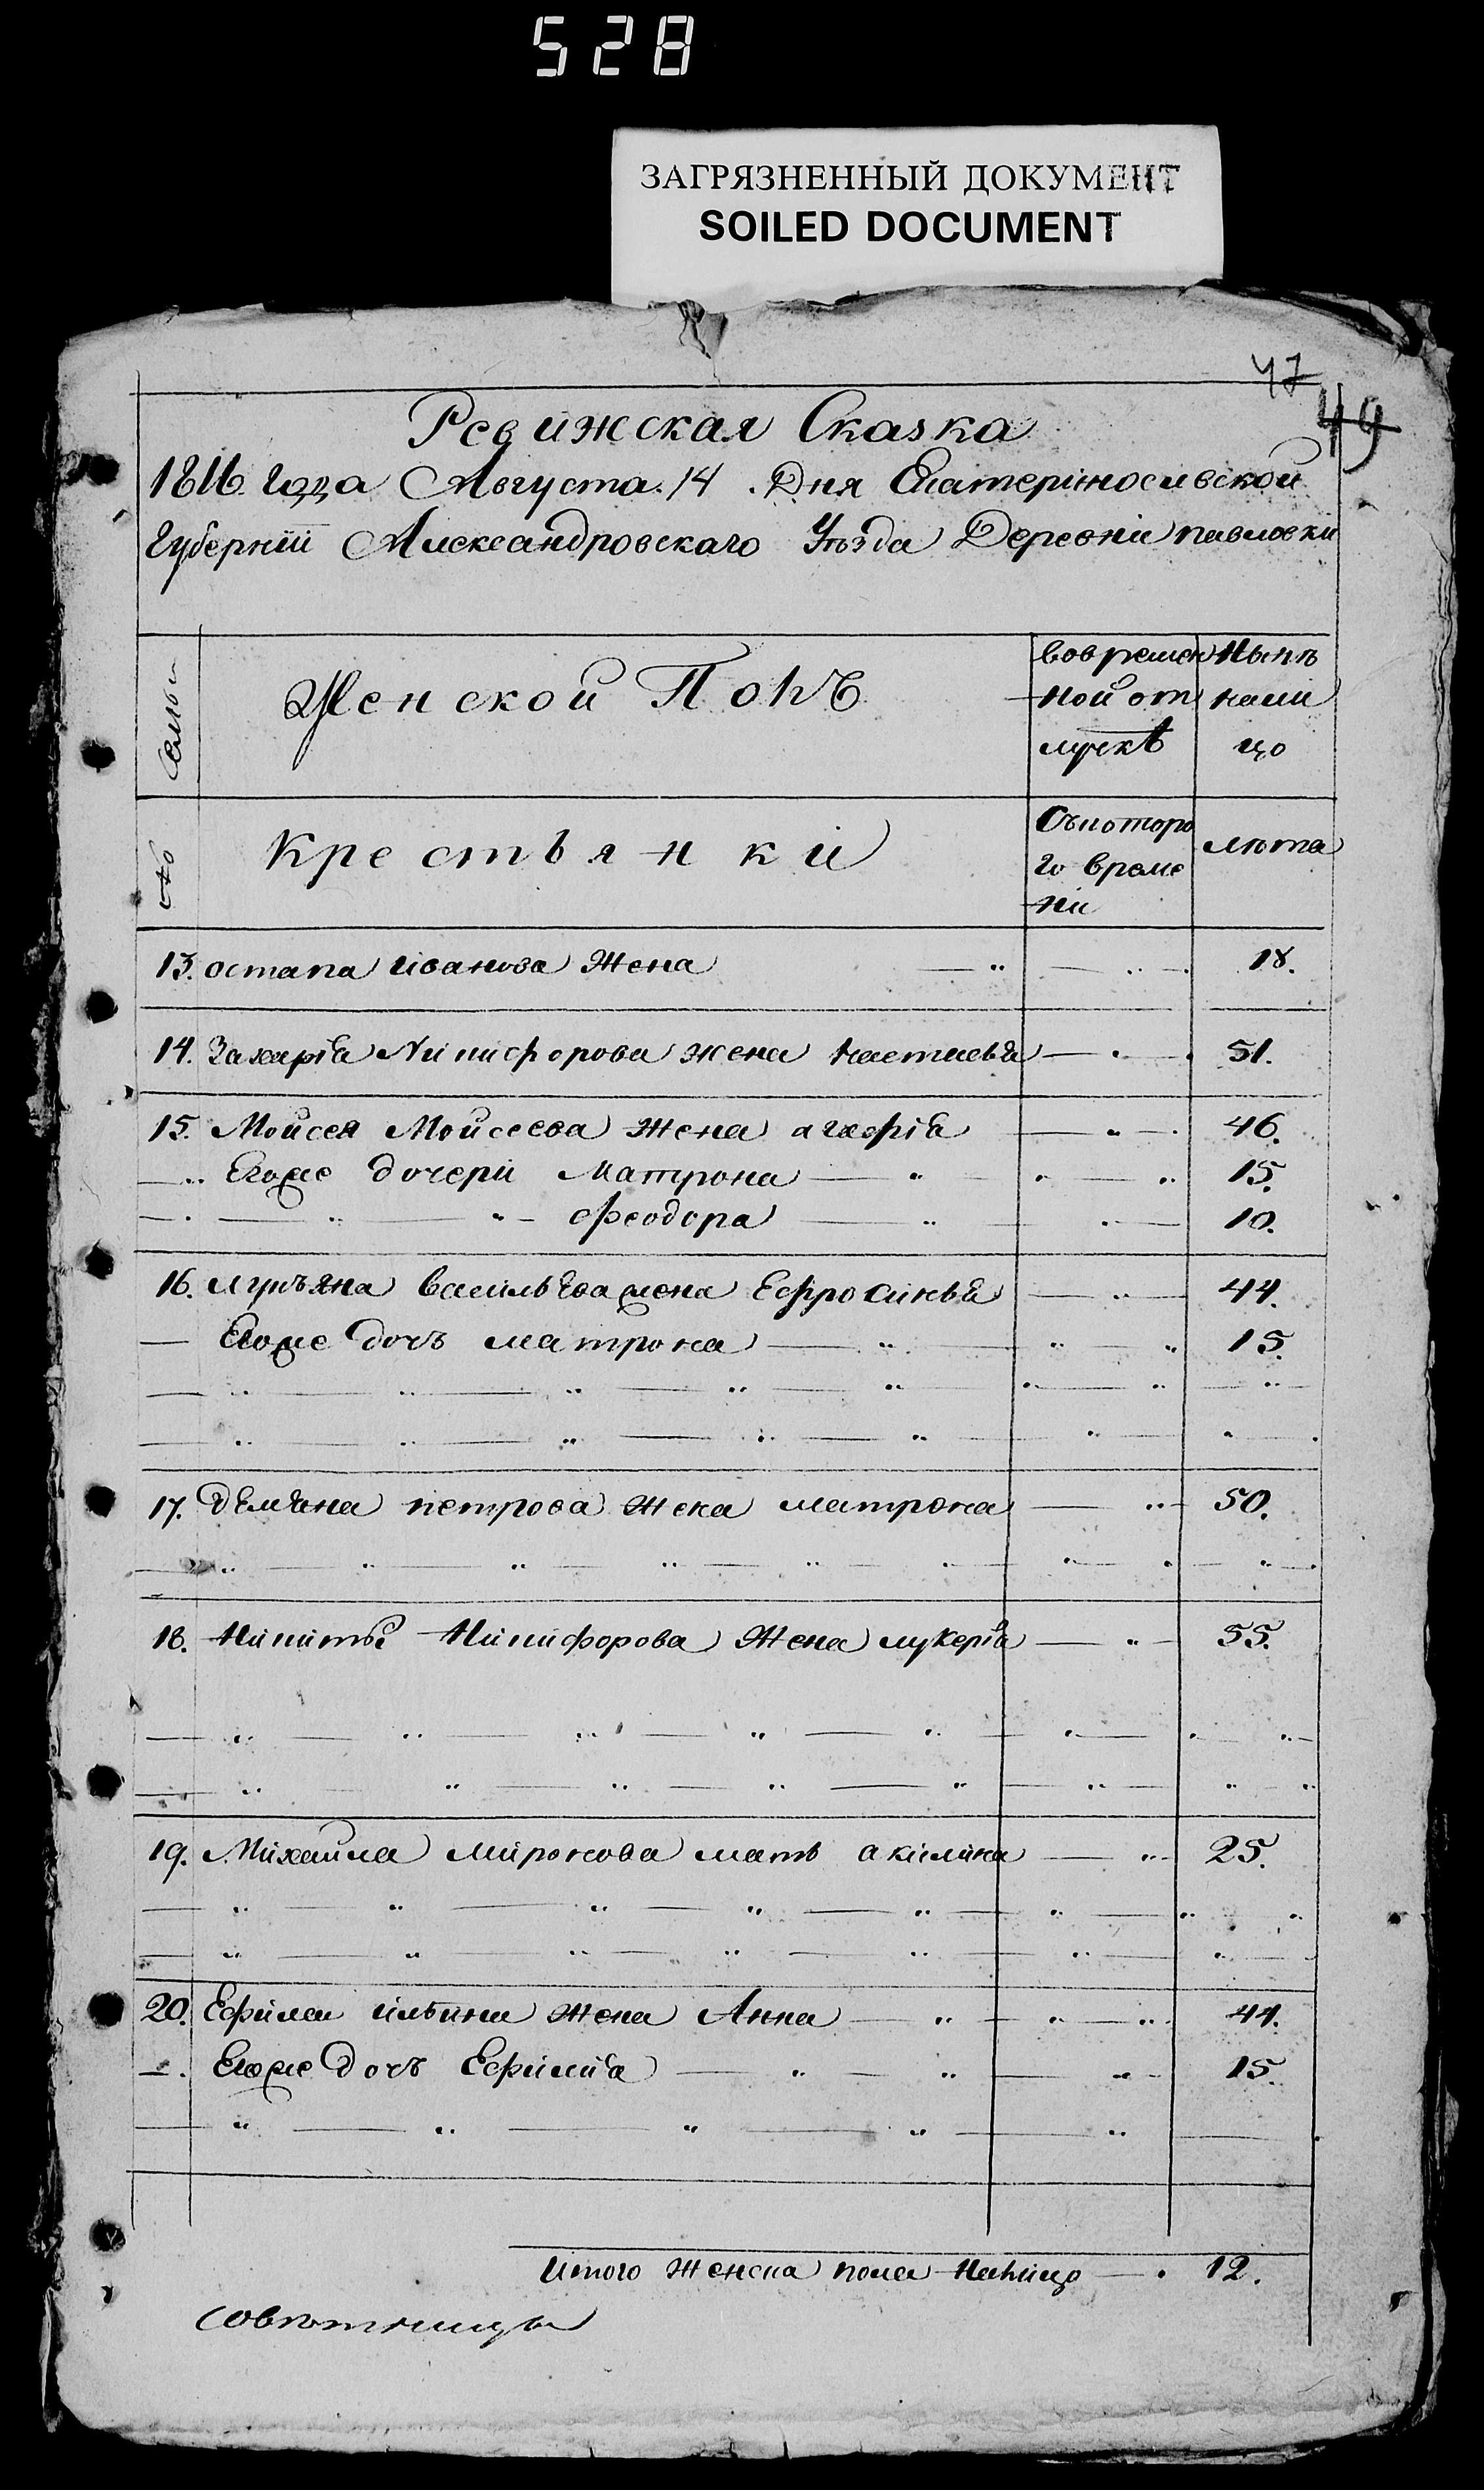 528
ЗАГРЯЗНЕННЫЙ ДОКУМЕНТ
SOILED DOCUMENT
47
49
Ревижская Сказка
1816 года Августа 14 Дня Екатеріносливской
Губерніи Александровскаго Уѣзда Деревни павловки
Семьи
Женской Полъ
вовремен
ной от
лучкѣ
Нынѣ
нали
цо
№
Крестьянки
Съкоторо
го време
ни
лѣта
13. остапа иванова Жена 18.
14. Захаріа Никифорова жена настасья 51.
15. Мойсея Мойсеева Жена агафіа 46.
Егоже дочери Матрона 15.
феодора 10.
16. лукъяна васильева жена Ефросинья 44.
Егоже дочь матрона 15.
17. демяна петрова жена матрона 50.
18. Никиты Никифорова Жена лукеріа 55.
19. Михайла миронова мать акилина 25.
20. Ефима ильина жена Анна 44.
Егоже дочь Ефиміа 15.
Итого женска пола налицо 12.
совѣтницы